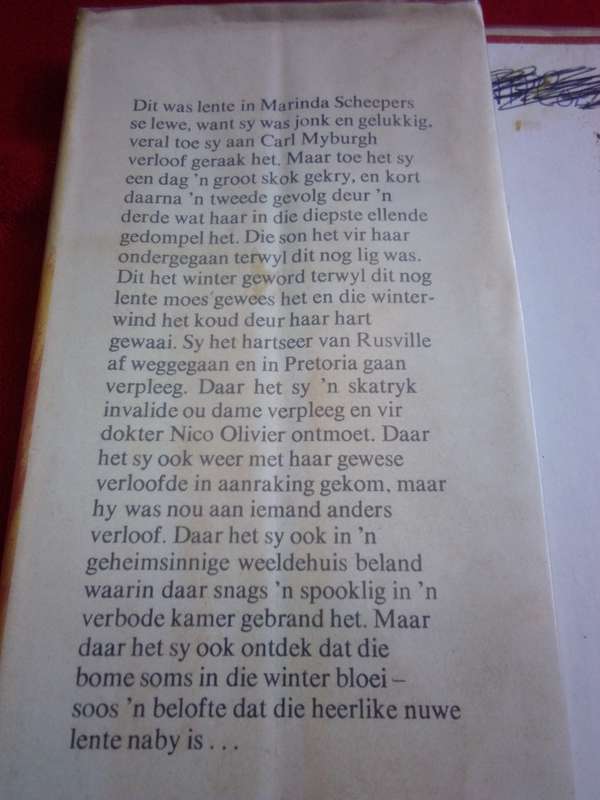 Dit was lente in Marinda Scheepers
se lewe, want sy was jonk en gelukkig,
veral toe sy aan Carl Myburgh
verloof geraak het. Maar toe het sy
een dag 'n groot skok gekry, en kort
daarna 'n tweede gevolg deur 'n
derde wat haar in die diepste ellende
gedompel het. Die son het vir haar
ondergegaan terwyl dit nog lig was.
Dit het winter geword terwyl dit nog
lente moes gewees het en die winter-
wind het koud deur haar hart
gewaai. Sy het hartseer van Rusville
af weggegaan en in Pretoria gaan
verpleeg. Daar het sy 'n skatryk
invalide ou dame verpleeg en vir
dokter Nico Olivier ontmoet. Daar
het sy ook weer met haar gewese
verloofde in aanraking gekom, maar
hy was nou aan iemand anders
verloof. Daar het sy ook in 'n
geheimsinnige weeldehuis beland
waarin daar snags 'n spooklig in 'n
verbode kamer gebrand het. Maar
daar het sy ook ontdek dat die
bome soms in die winter bloei –
soos 'n belofte dat die heerlike nuwe
lente naby is . . .